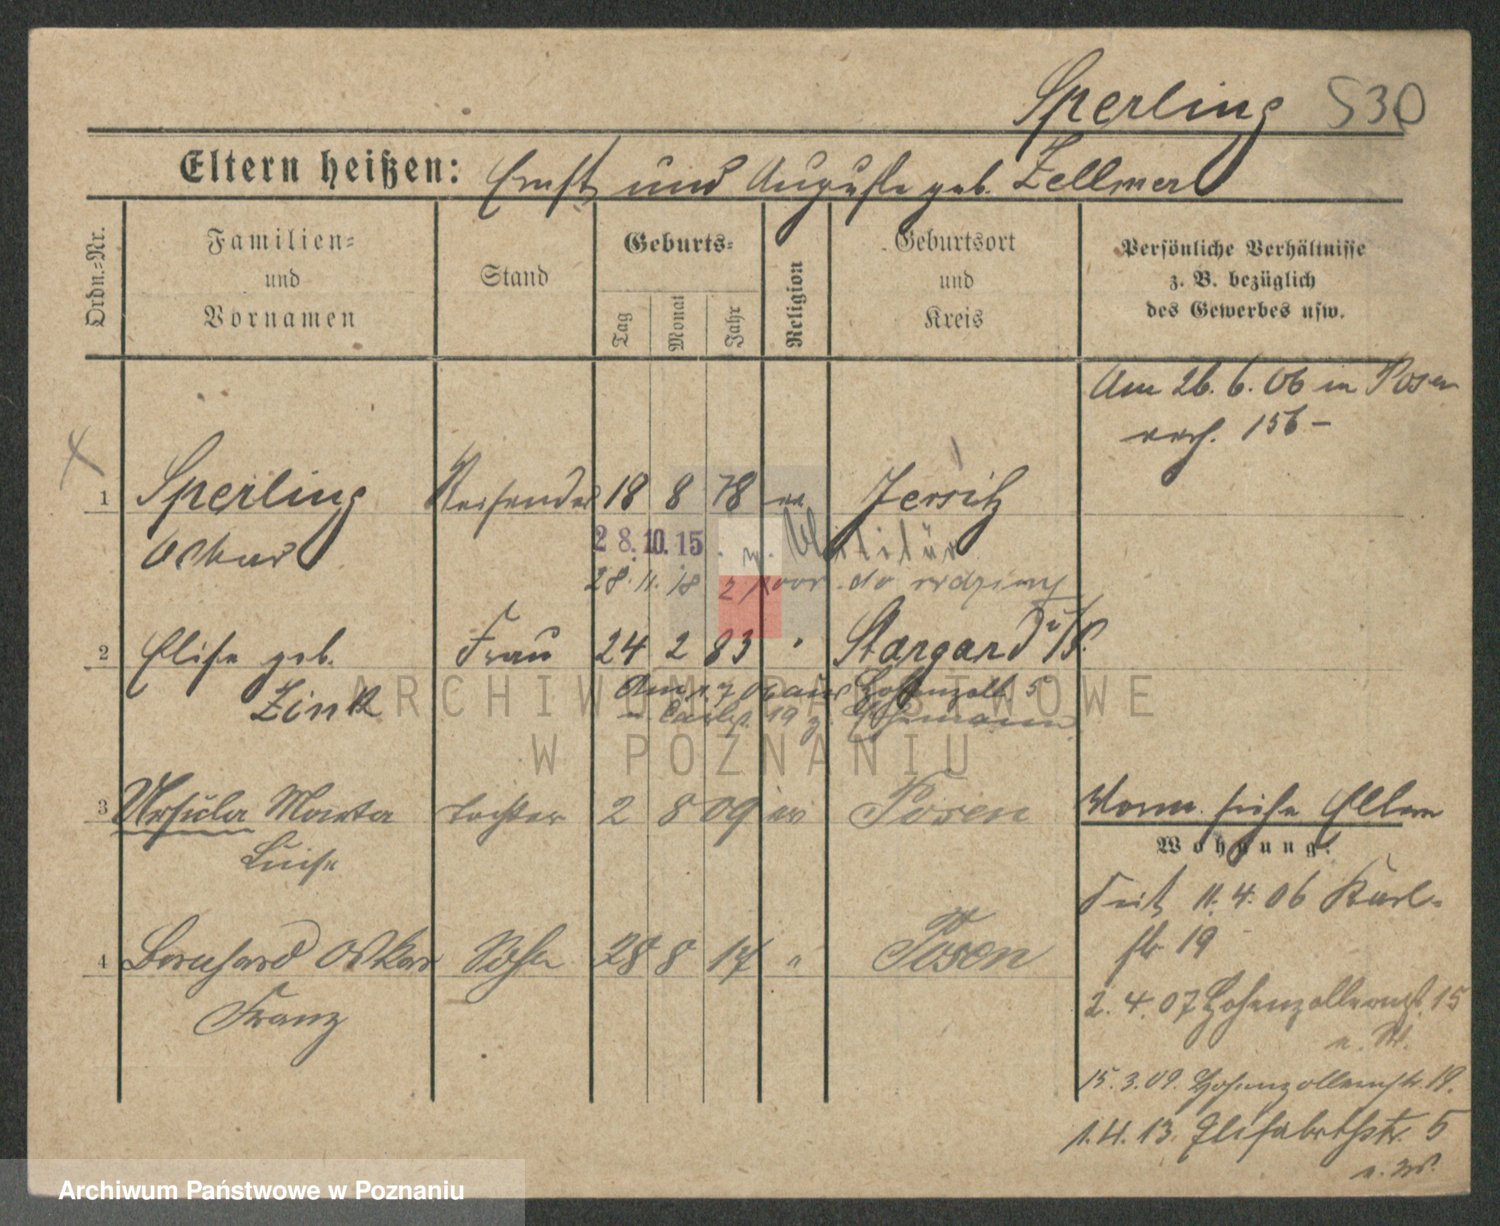 Sperling 530
Eltern heißen: Ernst und Auguste geb. Zellmer
Ordn.=Nr.
Familien= und Vornamen
Stand
Geburts=
Tag Monat Jahr
Religion
Geburtsort und Kreis
Persönliche Verhältnisse
z. B. bezüglich
des Gewerbes usw.
Am 26. 6. 06 in Posen
verh. 156 -
1 Sperling Reisender 18 8 78 ev Jersitz
Oskar 28.10.15. z. Militär
28.11.18 z do rodziny
2 Elise geb. Frau 24 2 83 " Stargard i/P.
Zink Am 1.7 06 aus Hohenzoll. 5
19 z. Ehemann
3 Ursula Marta Tochter 2 8 09 ev Posen
Luise
Vorm. siehe Eltern
Wohnung:
Seit 11. 4. 06 Karl-
str 19
4 Bernhard Oskar Sohn 28 8 14 " Posen
Franz
2. 4. 07 Hohenzollernstr. 15
15.3.09. Hohenzollernstr. 19.
1.4.13. Elisabethstr. 5
ARCHIWUM PAŃSTWOWE
W POZNANIU
Archiwum Państwowe w Poznaniu